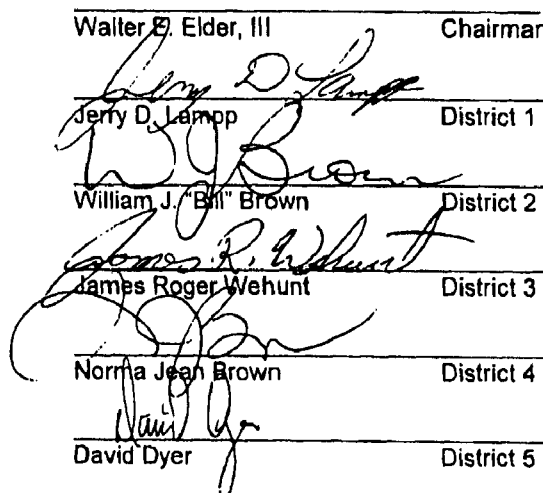 Walter E. Elder, III Chairman
Jerry D Lampp
Jerry D. Lampp District 1
W J Brown
William J. "Bill" Brown District 2
James R. Wehunt
James Roger Wehunt District 3
Norma Jean Brown District 4
David Dyer
David Dyer District 5